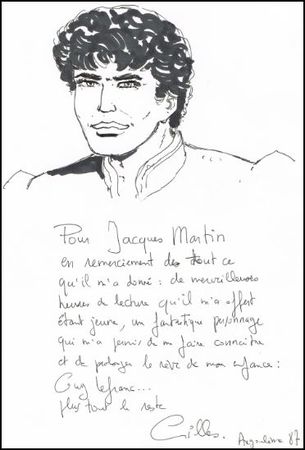 Pour Jacques Martin
en remerciement de tout ce
qu'il m'a donné : de merveilleuses
heures de lecture qu'il m'a offert
étant jeune, un fantastique personnage
qui m'a permis de me faire connaitre
et de prolonger le rêve de mon enfance :
Guy Lefranc...
plus tout le reste
Gilles.
Angoulême 87